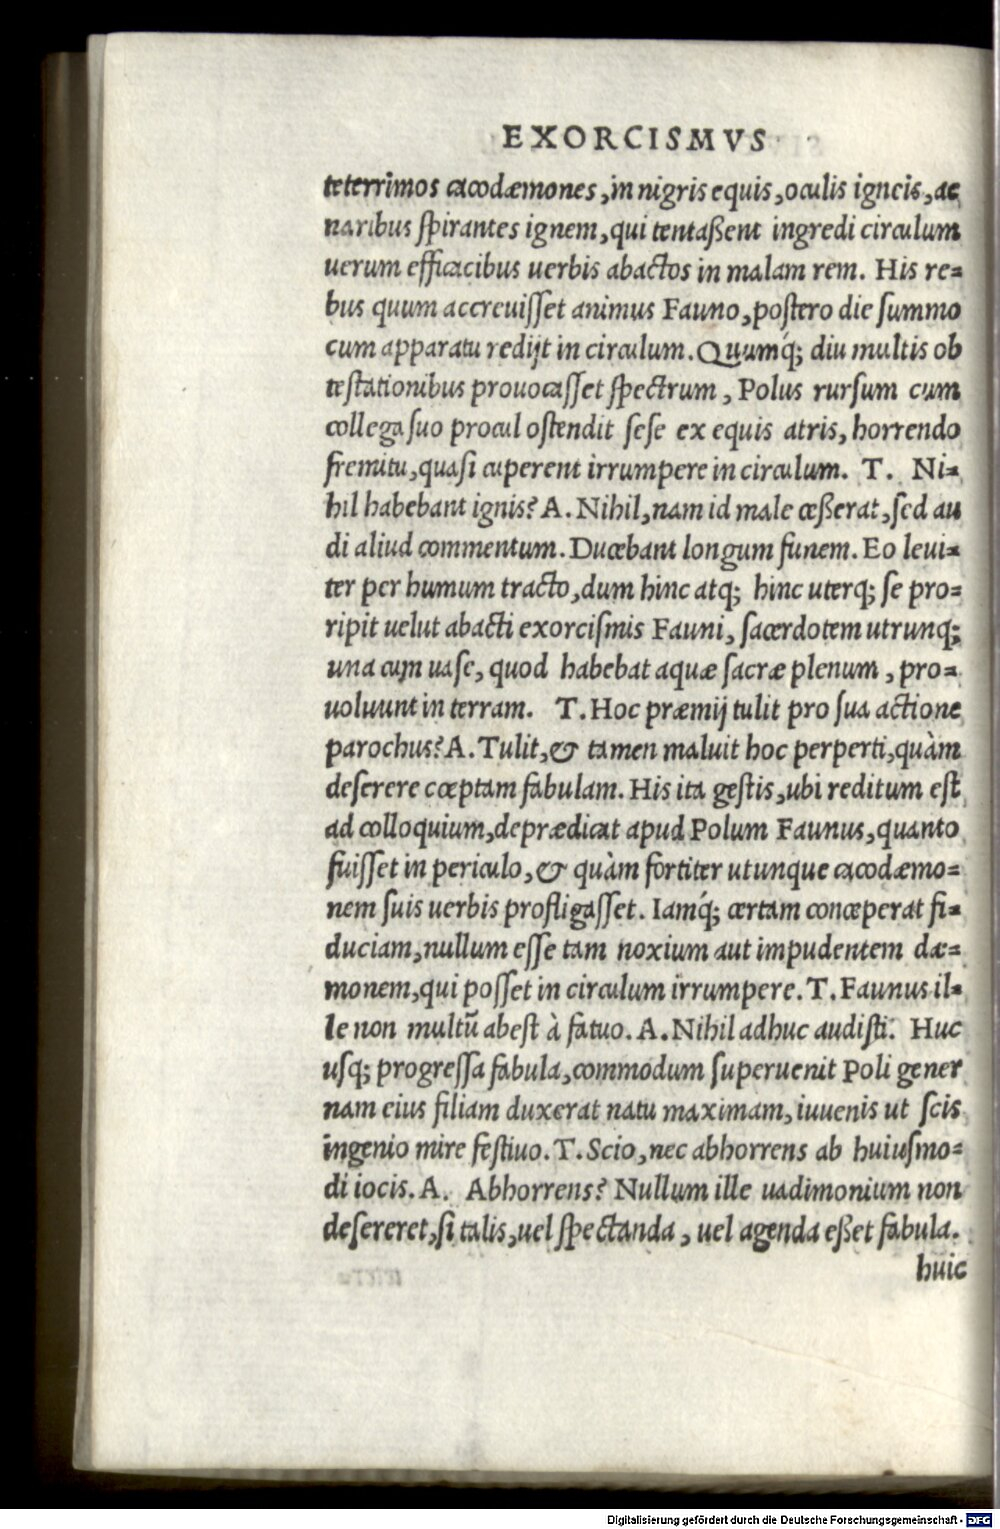 EXORCISMVS
teterrimos cacodæmones, in nigris equis, oculis igneis, ac
naribus ſpirantes ignem, qui tentaßent ingredi circulum
uerum efficacibus uerbis abactos in malam rem. His re=
bus quum accreuiſſet animus Fauno, poſtero die ſummo
cum apparatu redijt in circulum. Quumq́; diu multis ob
teſtationibus prouocaſſet ſpectrum, Polus rurſum cum
collega ſuo procul oſtendit ſeſe ex equis atris, horrendo
fremitu, quaſi cuperent irrumpere in circulum. T. Ni=
hil habebant ignis? A. Nihil, nam id male ceßerat, ſed au
di aliud commentum. Ducebant longum funem. Eo leui=
ter per humum tracto, dum hinc atq; hinc uterq; ſe pro=
ripit uelut abacti exorciſmis Fauni, ſacerdotem utrunq;
una cum uaſe, quod habebat aquæ ſacræ plenum, pro=
uoluunt in terram. T. Hoc præmij tulit pro ſua actione
parochus? A. Tulit, & tamen maluit hoc perperti, quàm
deſerere cœptam fabulam. His ita geſtis, ubi reditum eſt
ad colloquium, deprædicat apud Polum Faunus, quanto
fuiſſet in periculo, & quàm fortiter utunque cacodæmo=
nem ſuis uerbis profligaſſet. Iamq́; certam conceperat fi=
duciam, nullum eſſe tam noxium aut impudentem dæ=
monem, qui poſſet in circulum irrumpere. T. Faunus il=
le non multũ abeſt à fatuo. A. Nihil adhuc audiſti. Huc
uſq; progreſſa fabula, commodum ſuperuenit Poli gener
nam eius filiam duxerat natu maximam, iuuenis ut ſcis
ingenio mire feſtiuo. T. Scio, nec abhorrens ab huiuſmo=
di iocis. A. Abhorrens? Nullum ille uadimonium non
deſereret, ſi talis, uel ſpectanda, uel agenda eßet fabula.
huic
Digitalisierung gefördert durch die Deutsche Forschungsgemeinschaft - DFG